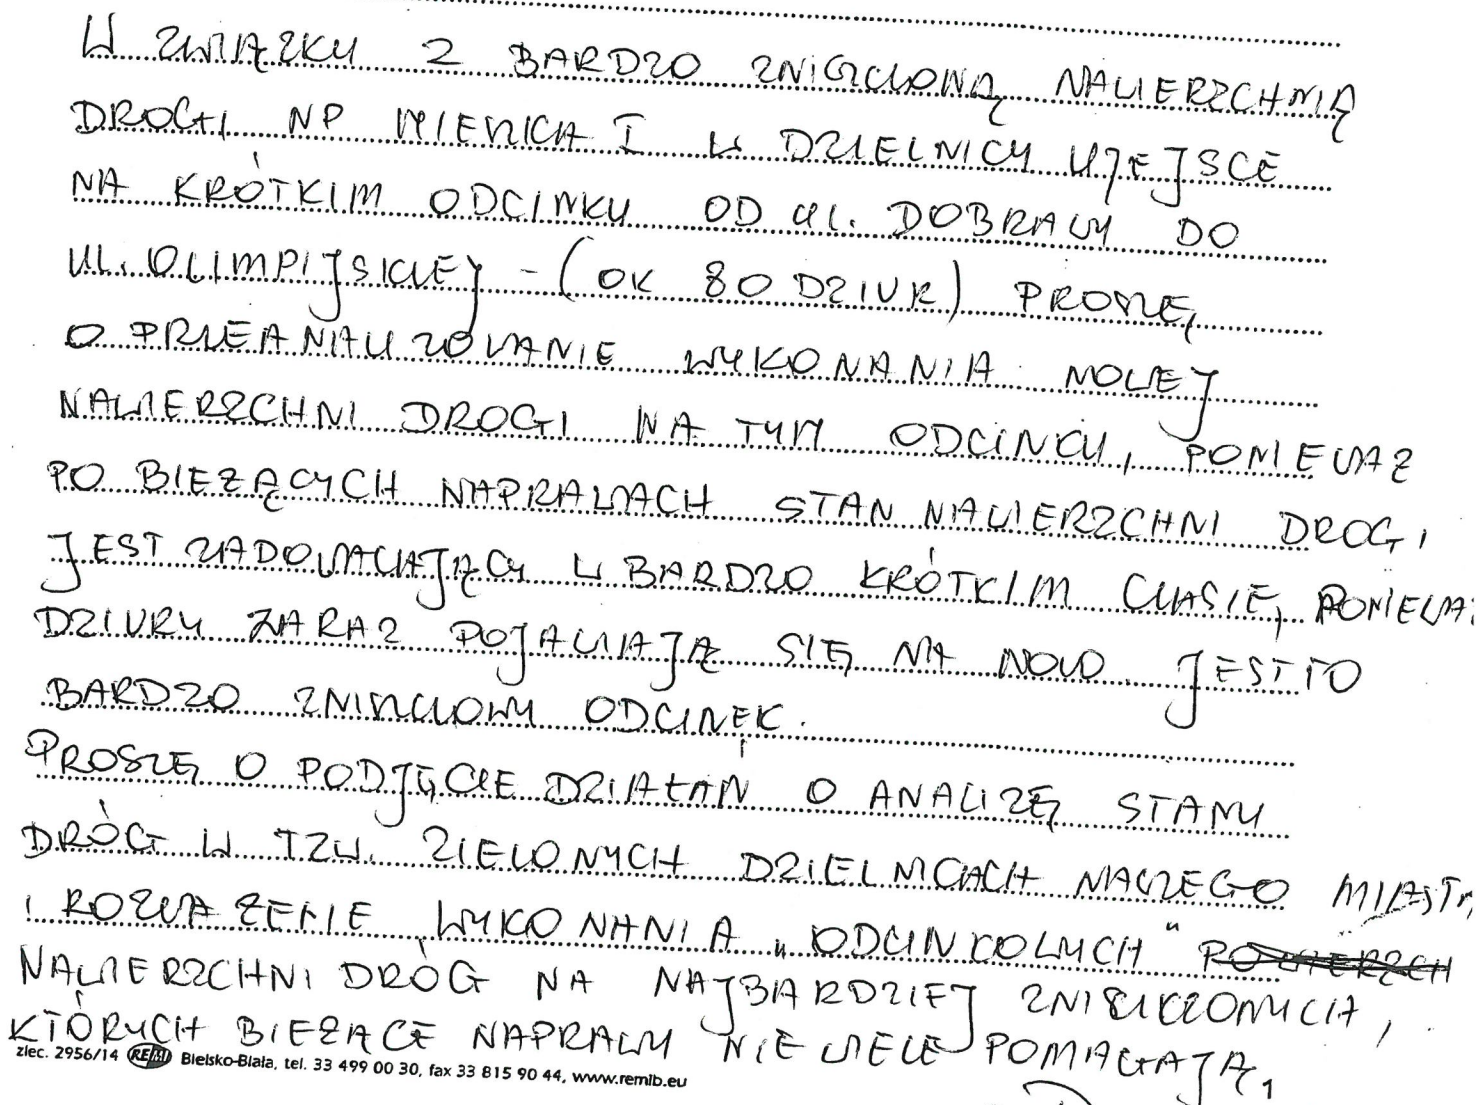 W ZWIĄZKU Z BARDZO ZNISZCZONĄ NAWIERZCHNIĄ
DROGI NP WIEŃCA I W DZIELNICY UJEJSCE
NA KRÓTKIM ODCINKU OD UL. DOBRAWY DO
UL. OLIMPIJSKIEJ - (OK 80 DZIUR) PROSZĘ
O PRZEANALIZOWANIE WYKONANIA NOWEJ
NAWIERZCHNI DROGI NA TYM ODCINKU, PONIEWAŻ
PO BIEŻĄCYCH NAPRAWACH STAN NAWIERZCHNI DROGI
JEST ZADOWALAJĄCY W BARDZO KRÓTKIM CZASIE, PONIEWA
DZIURY ZARAZ POJAWIAJĄ SIĘ NA NOWO. JEST TO
BARDZO ZNISZCZONY ODCINEK.
PROSZĘ O PODJĘCIE DZIAŁAŃ O ANALIZĘ STANU
DRÓG W TZW. ZIELONYCH DZIELNICACH NASZEGO MIASTA
I ROZWAŻENIE WYKONANIA „ODCINKOWYCH"
NAWIERZCHNI DRÓG NA NAJBARDZIEJ ZNISZCZONYCH,
KTÓRYCH BIEŻĄCE NAPRAWY NIEWIELE POMAGAJĄ,
zlec. 2956/14 REMI Bielsko-Biała, tel. 33 499 00 30, fax 33 815 90 44, www.remib.eu